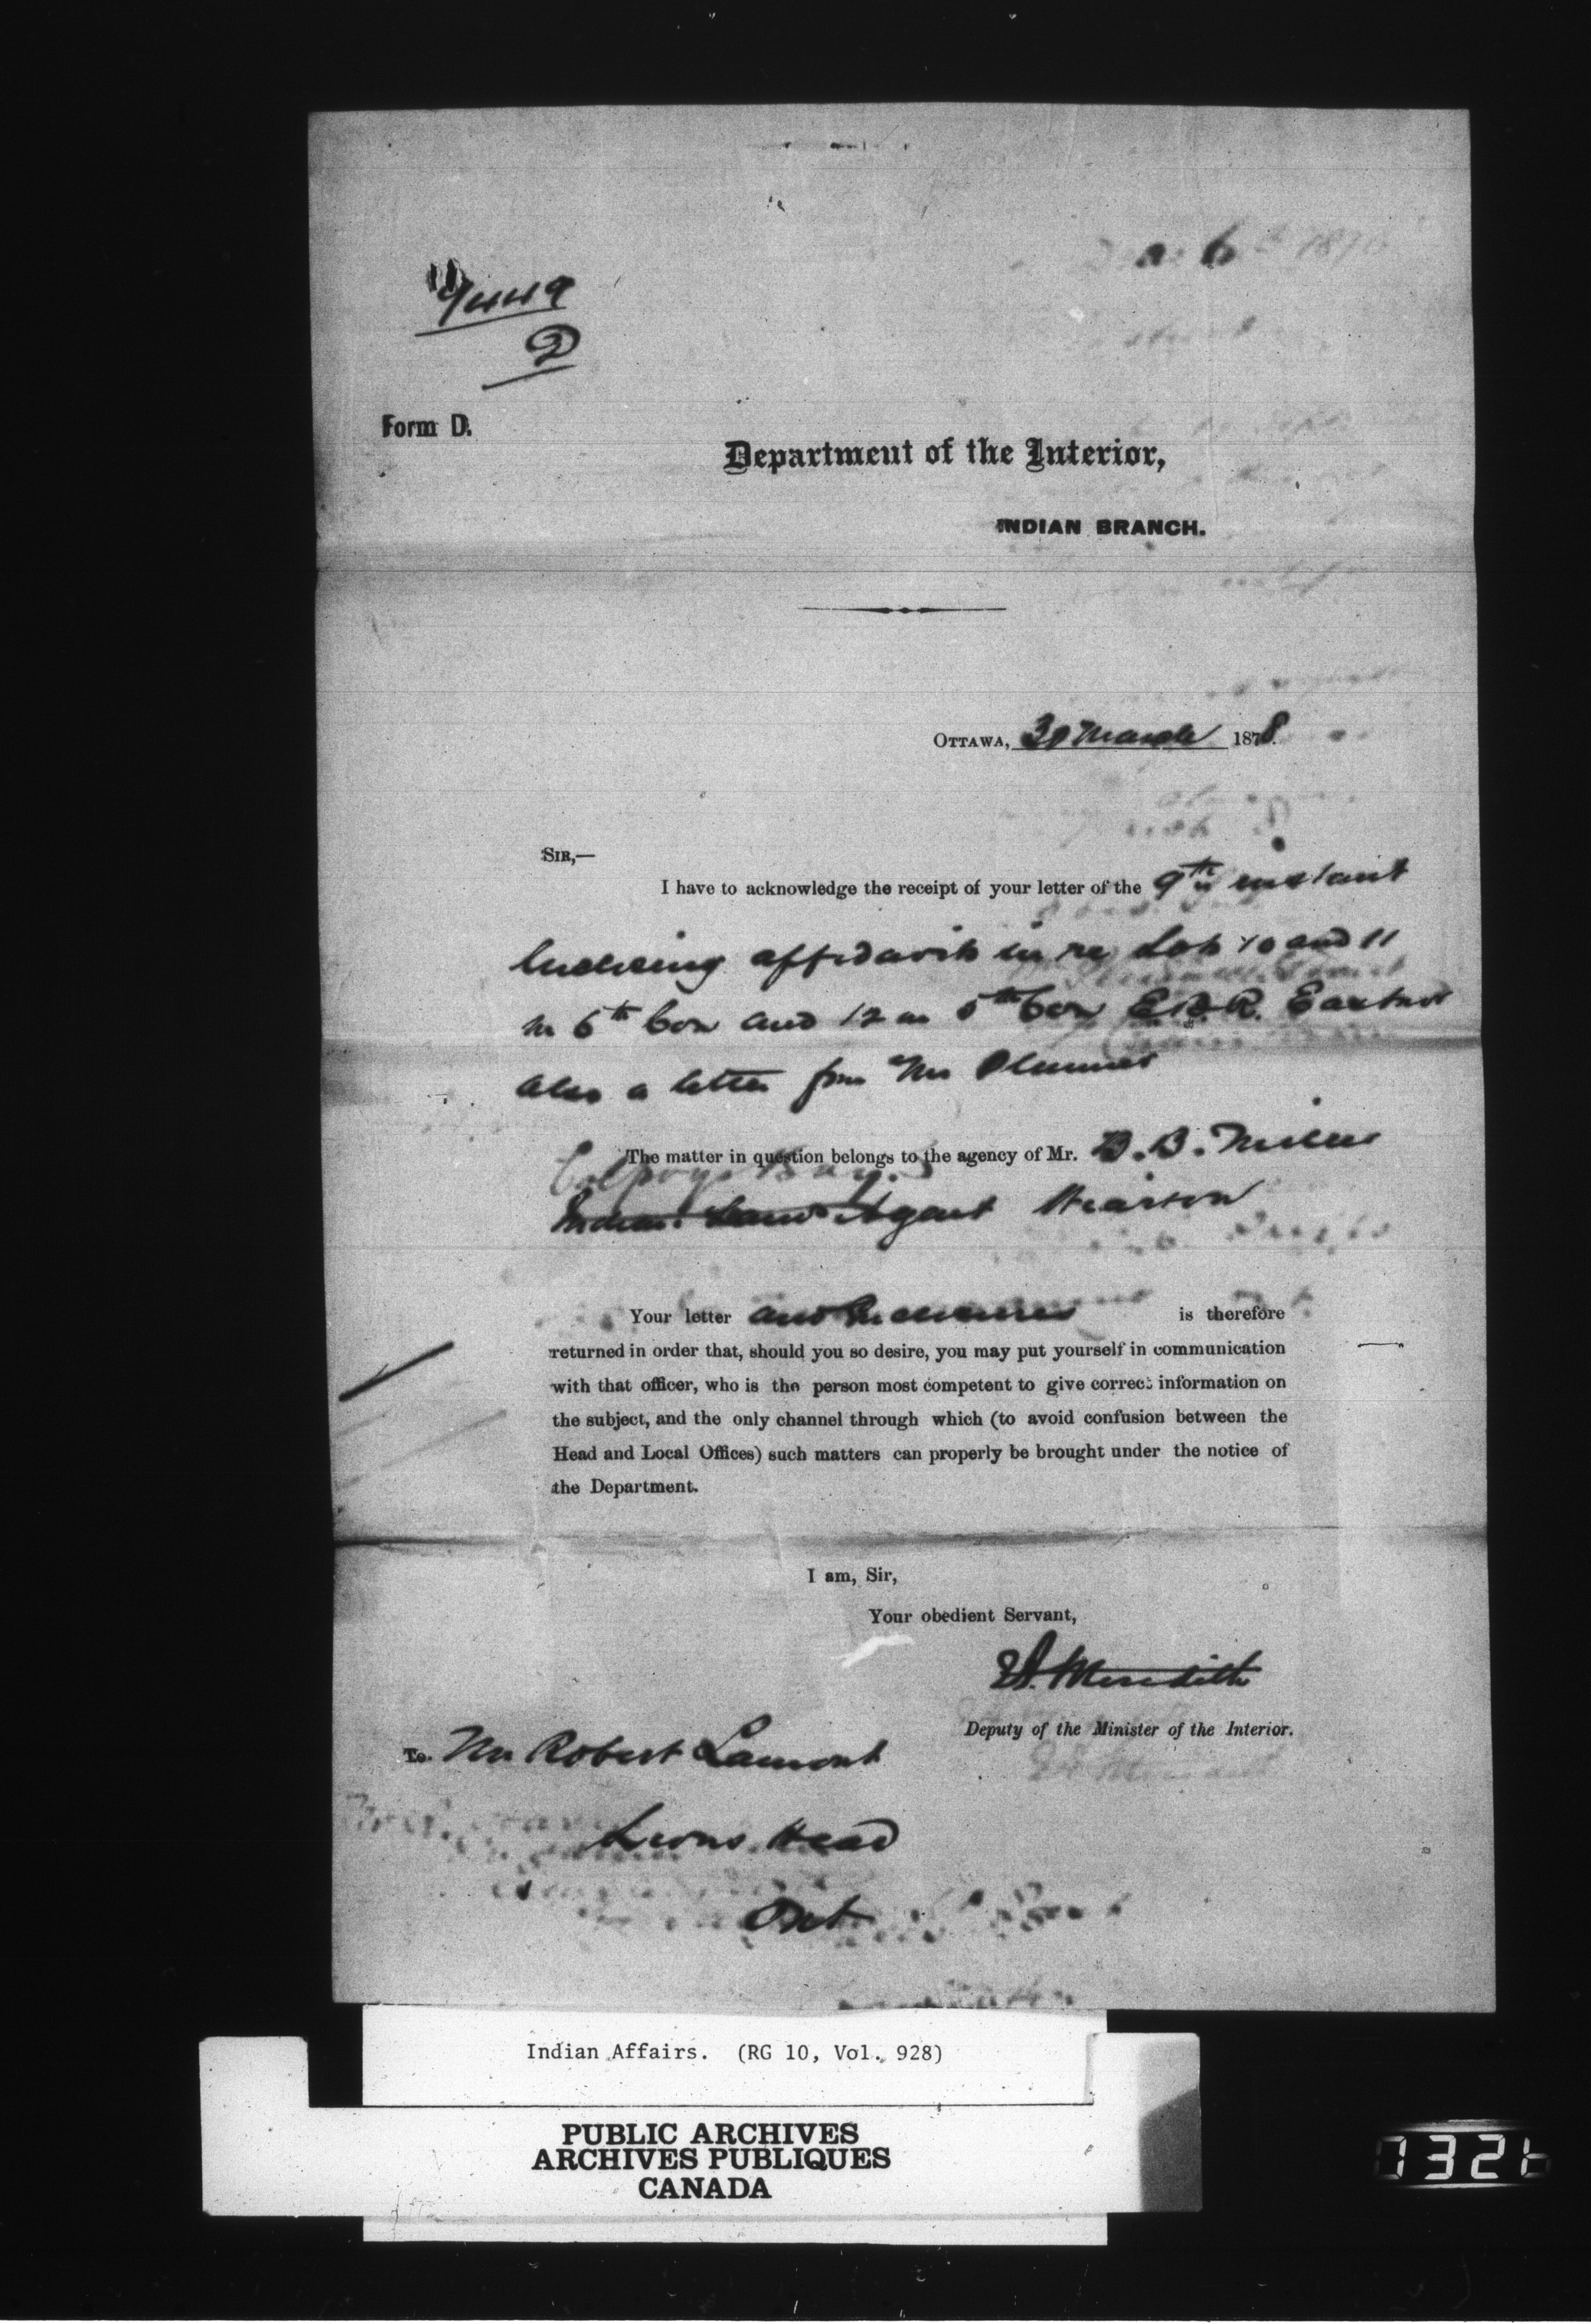 9449
D
Form D.
Department of the Interior,
INDIAN BRANCH.
OTTAWA, 30 March 1878.
SIR,—
I have to acknowledge the receipt of your letter of the 9th instant
Inclosing affidavits in re Lots 10 and 11
in 6th Con and 12 in 5th Con E.B.R. Eastnor
also a letter from Mr Plummer
The matter in question belongs to the agency of Mr. B. B. Miller
Colpoys Bay.
Indian Land Agent Wiarton
Your letter and Inclosures is therefore
returned in order that, should you so desire, you may put yourself in communication
with that officer, who is the person most competent to give correct information on
the subject, and the only channel through which (to avoid confusion between the
Head and Local Offices) such matters can properly be brought under the notice of
the Department.
I am, Sir,
Your obedient Servant,
Meredith
Deputy of the Minister of the Interior.
To. Mr Robert Lamont
Lions Head
Ont
Indian Affairs. (RG 10, Vol. 928)
PUBLIC ARCHIVES
ARCHIVES PUBLIQUES
CANADA